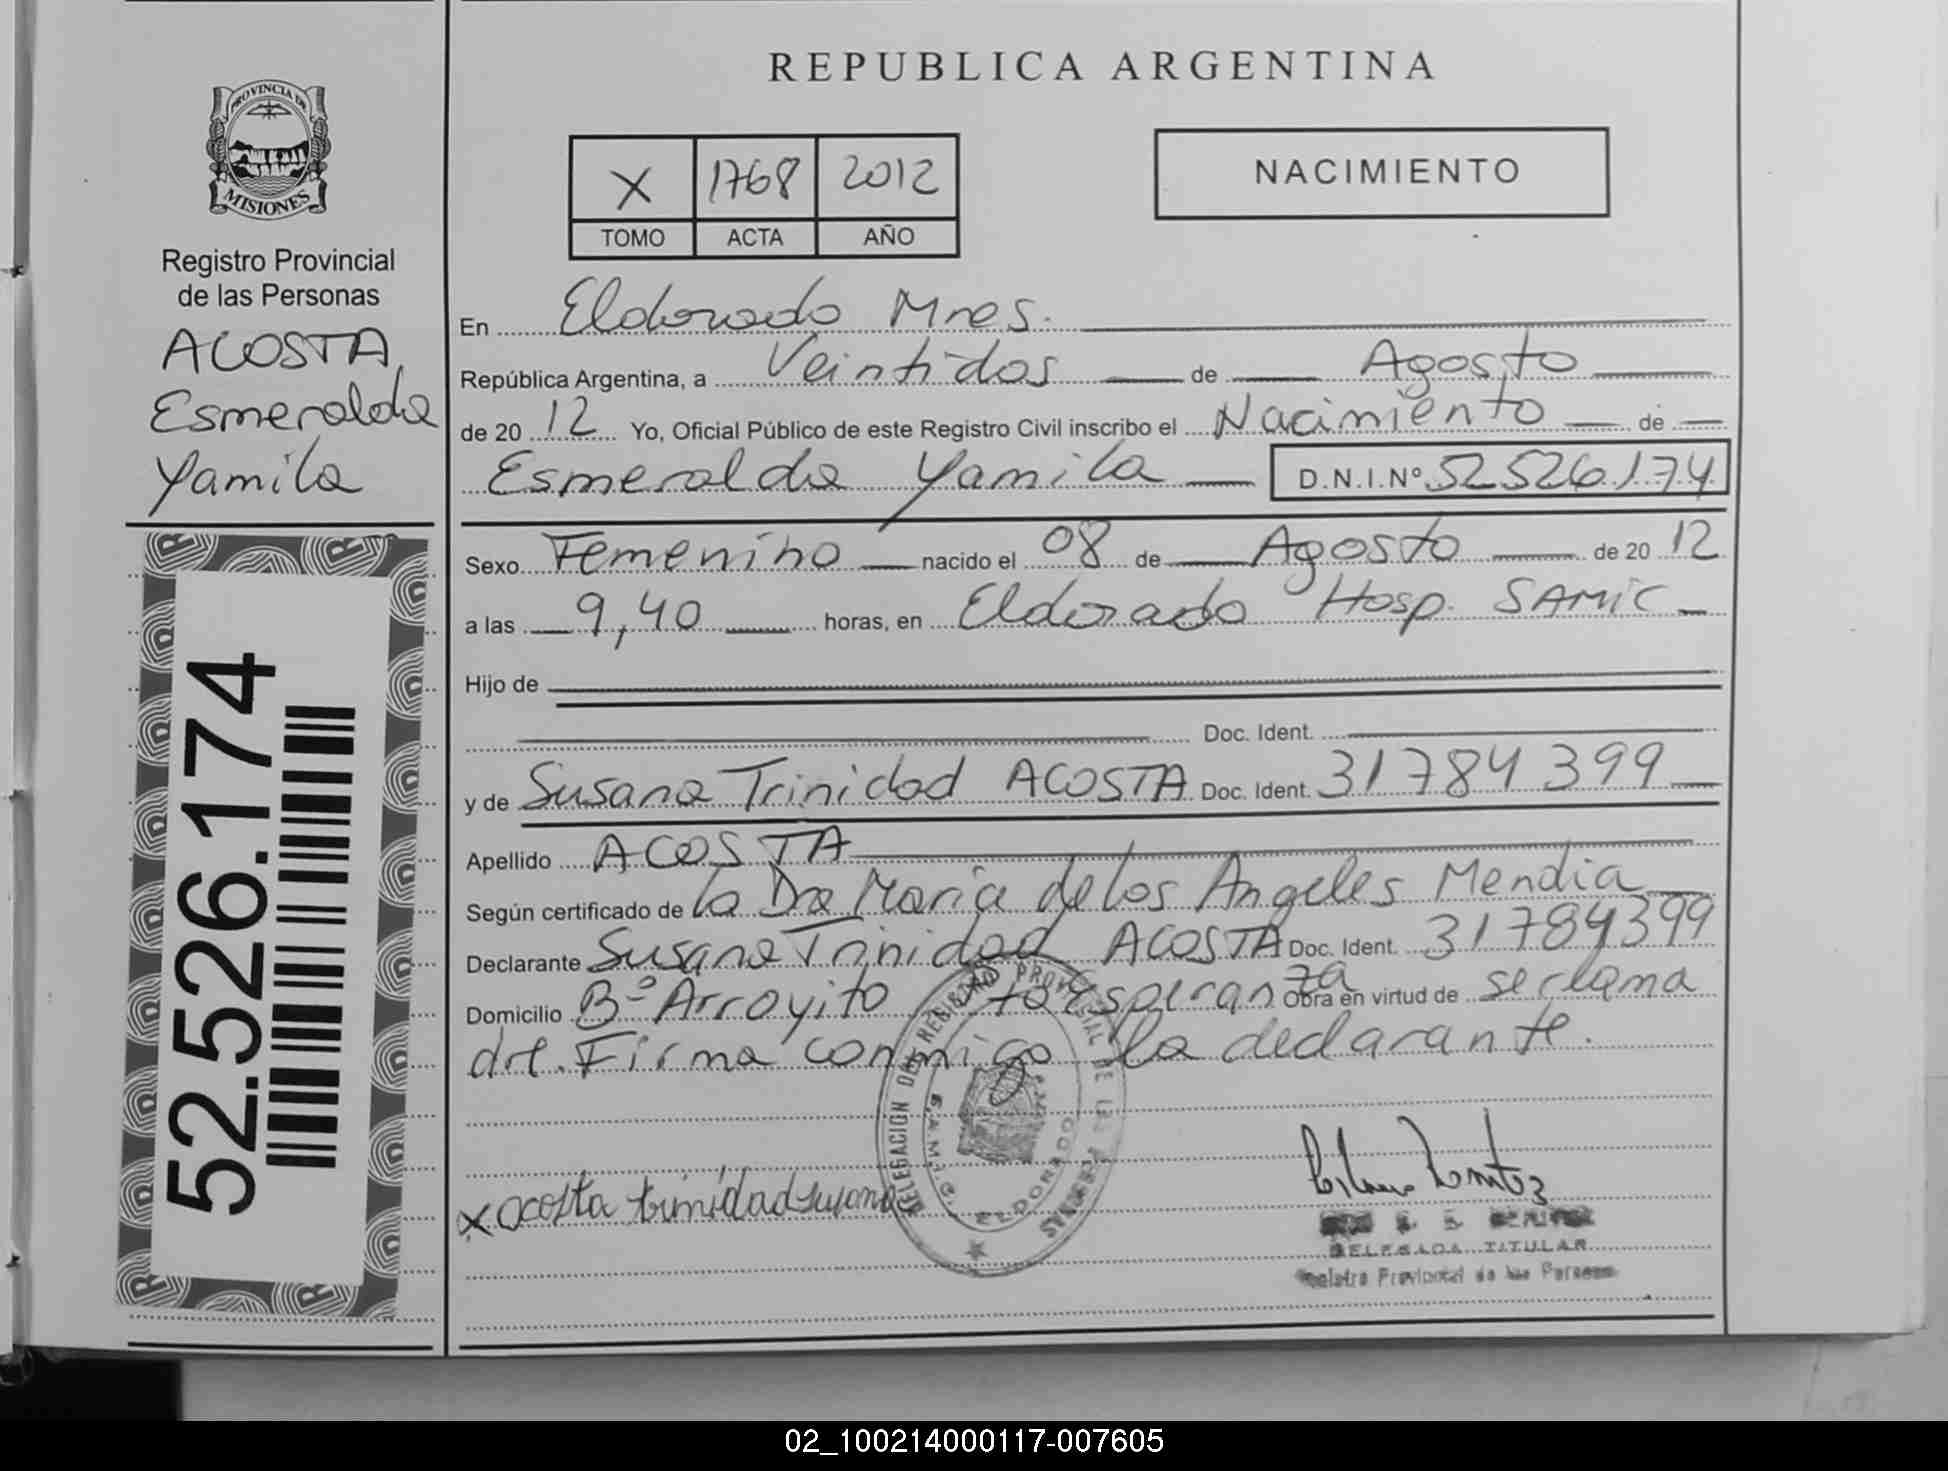 REPUBLICA ARGENTINA
PROVINCIA DE
MISIONES
Registro Provincial
de las Personas
ACOSTA
Esmeralda
Yamila
52.526.174
X 1768 2012
TOMO ACTA AÑO
NACIMIENTO
En Eldorado Mnes.
República Argentina, a Veintidos de Agosto
de 20 12 Yo, Oficial Público de este Registro Civil inscribo el Nacimiento de
Esmeralda Yamila D.N.I.Nº 52526174
Sexo Femenino nacido el 08 de Agosto de 20 12
a las 9,40 horas, en Eldorado Hosp. SAMIC
Hijo de
Doc. Ident.
y de Susana Trinidad ACOSTA Doc. Ident. 31784399
Apellido ACOSTA
Según certificado de la Dra Maria de los Angeles Mendia
Declarante Susana Trinidad ACOSTA Doc. Ident. 31784399
Domicilio Bº Arroyito Pto Esperanza Obra en virtud de ser la ma
dre. Firma conmigo la declarante.
DELEGACION DEL REGISTRO PROVINCIAL DE LAS PERSONAS
S.A.M.I.C. ELDORADO
x acosta trinidad susana
DELEGADA TITULAR
Registro Provincial de las Personas
02_100214000117-007605